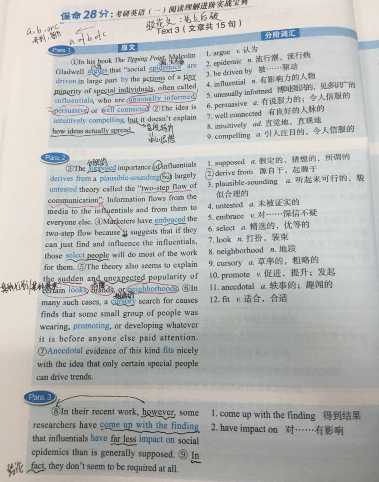 保命28分：考研英语（一）阅读理解进阶实战宝典
Text 3（文章共 15 句）
Para 1
原文
分阶词汇
①In his book The Tipping Point, Malcolm
Gladwell argues that "social epidemics" are
driven in large part by the actions of a tiny
minority of special individuals, often called
influentials, who are unusually informed,
persuasive, or well connected. ②The idea is
intuitively compelling, but it doesn't explain
how ideas actually spread.
1. argue v. 认为
2. epidemic n. 流行潮，流行热
3. be driven by 被……驱动
4. influential n. 有影响力的人物
5. unusually informed 博闻强识的，见多识广的
6. persuasive a. 有说服力的；令人信服的
7. well connected 有良好的人脉的
8. intuitively ad. 直觉地，直观地
9. compelling a. 引人注目的，令人信服的
Para 2
③The supposed importance of influentials
derives from a plausible-sounding but largely
untested theory called the "two-step flow of
communication": Information flows from the
media to the influentials and from them to
everyone else. ④Marketers have embraced the
two-step flow because it suggests that if they
can just find and influence the influentials,
those select people will do most of the work
for them. ⑤The theory also seems to explain
the sudden and unexpected popularity of
certain looks, brands, or neighborhoods. ⑥In
many such cases, a cursory search for causes
finds that some small group of people was
wearing, promoting, or developing whatever
it is before anyone else paid attention.
⑦Anecdotal evidence of this kind fits nicely
with the idea that only certain special people
can drive trends.
1. supposed a. 假定的，猜想的，所谓的
2. derive from 源自于，起源于
3. plausible-sounding a. 听起来可行的，貌
似合理的
4. untested a. 未被证实的
5. embrace v. 对……深信不疑
6. select a. 精选的，优等的
7. look n. 打扮，装束
8. neighborhood n. 地段
9. cursory a. 草率的，粗略的
10. promote v. 促进，提升；发起
11. anecdotal a. 轶事的；趣闻的
12. fit v. 适合，合适
Para 3
⑧In their recent work, however, some
researchers have come up with the finding
that influentials have far less impact on social
epidemics than is generally supposed. ⑨In
fact, they don't seem to be required at all.
1. come up with the finding 得到结果
2. have impact on 对……有影响